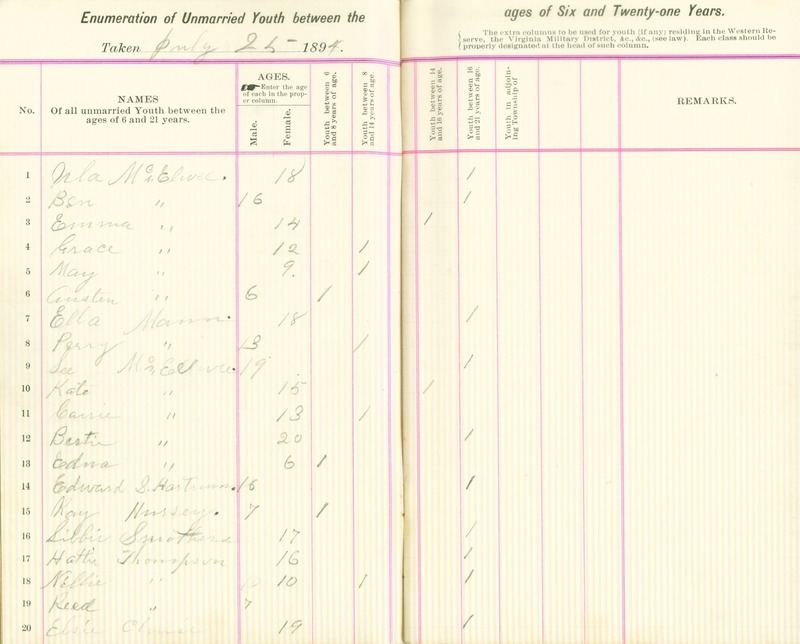 Enumeration of Unmarried Youth between the ages of Six and Twenty-one Years.
Taken July 25 1894.
The extra columns to be used for youth (if any) residing in the Western Re-
serve, the Virginia Military District, &c., &c., (see law). Each class should be
properly designated at the head of such column.
No.
NAMES
Of all unmarried Youth between the
ages of 6 and 21 years.
AGES.
Enter the age
of each in the prop-
er column.
Male.
Female.
Youth between 6
and 8 years of age.
Youth between 8
and 14 years of age.
Youth between 14
and 16 years of age.
Youth between 16
and 21 years of age.
Youth in adjoin-
ing Township of
REMARKS.
1 18 /
2 Ben " 16 /
3 Emma " 14 /
4 Grace " 12 /
5 May " 9. /
6 Austin " 6 /
7 Ella Mann. 18 /
8 Perry " 13 /
9 19 /
10 Kate " 15 /
11 Carrie " 13 /
12 Bertie " 20 /
13 Edna " 6 /
14 Edward S. 16 /
15 Ray Hursey. 7 /
16 Smothers 17 /
17 Hattie Thompson 16 /
18 Nellie " 10 / /
19 Reed " 7
20 Elsie 19 /